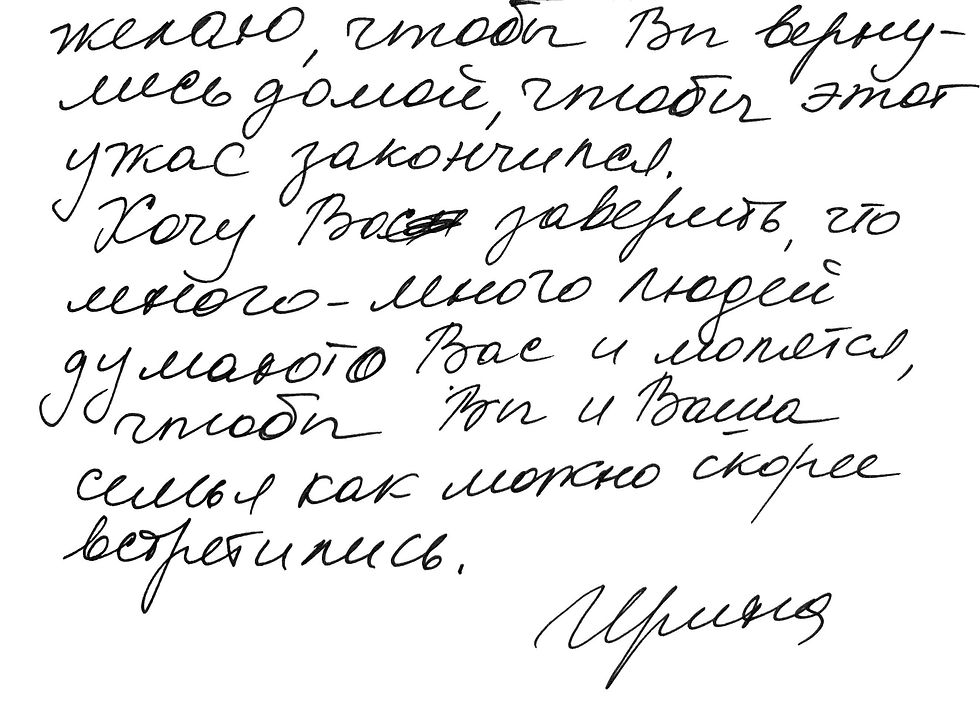 желаю, чтобы Вы верну-
лись домой, чтобы этот
ужас закончился.
Хочу Вас заверить, что
много-много людей
думают о Вас и молятся,
чтобы Вы и Ваша
семья как можно скорее
встретились.
Ирина